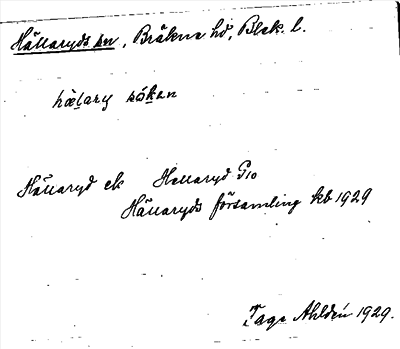 Hällaryds sn, Bräkne hd, Blek. l.
hälary sókan
Hällaryd ek Hellaryd G10
Hällaryds församling kb 1929
Tage Ahldén 1929.